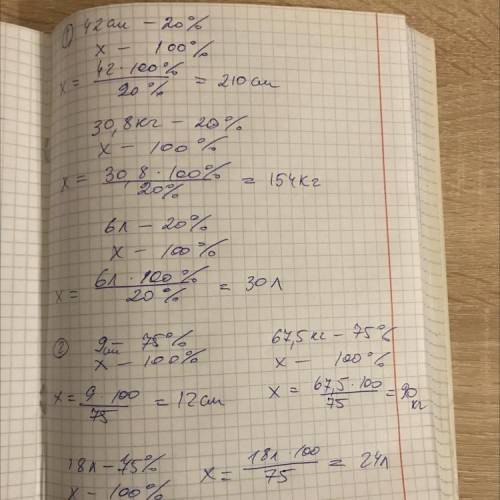 ① 42см – 20%
х – 100%
х = 42·100% / 20% = 210см
30,8кг – 20%
х – 100%
х = 30,8·100% / 20% = 154кг
6л – 20%
х – 100%
х = 6л·100% / 20% = 30л
② 9см – 75%
х – 100%
х = 9·100 / 75 = 12см
67,5кг – 75%
х – 100%
х = 67,5·100 / 75 = 90 кг
18л – 75%
х – 100%
х = 18л·100 / 75 = 24л